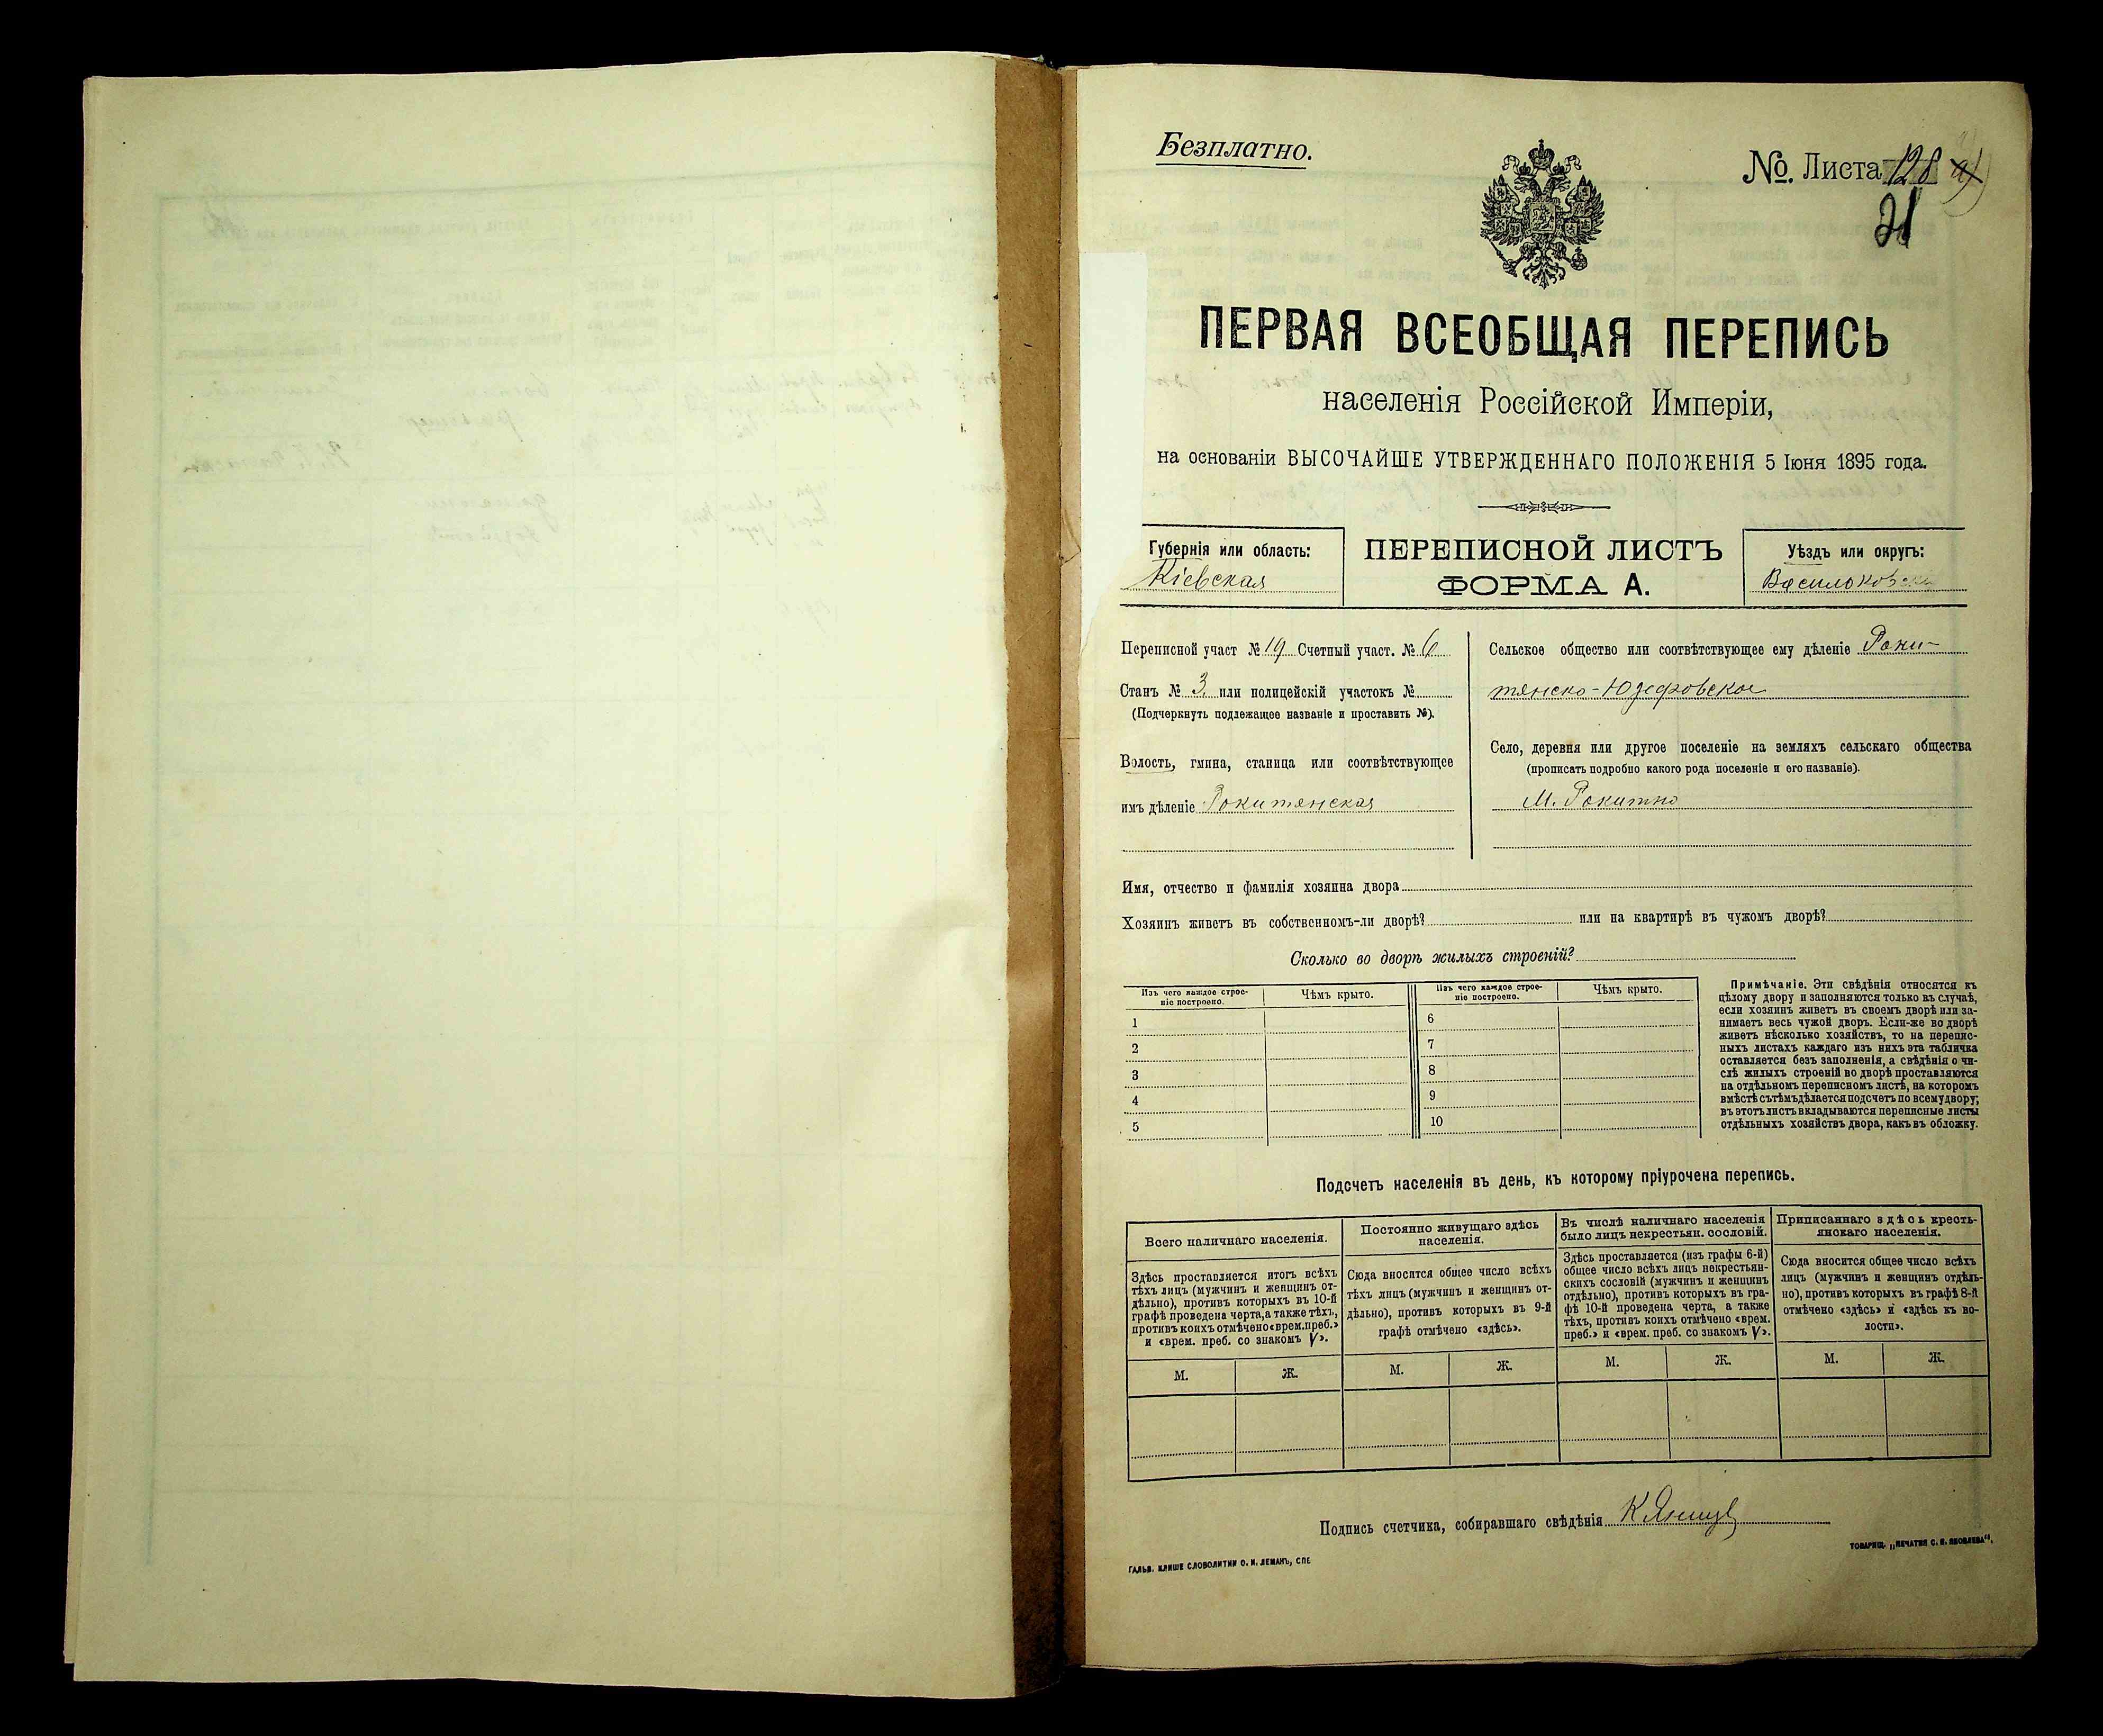 Безплатно.
№. Листа 128
21
ПЕРВАЯ ВСЕОБЩАЯ ПЕРЕПИСЬ
населенія Россійской Имперіи,
на основаніи ВЫСОЧАЙШЕ УТВЕРЖДЕННАГО ПОЛОЖЕНІЯ 5 Іюня 1895 года.
Губернія или область:
Кіевская
ПЕРЕПИСНОЙ ЛИСТЪ
ФОРМА А.
Уѣздъ или округъ:
Васильковскі
Переписной участ № 19 Счетный участ. № 6
Станъ № 3 или полицейскій участокъ №
(Подчеркнуть подлежащее названіе и проставить №).
Волость, гмина, станица или соотвѣтствующее
имъ дѣленіе Рокитянская
Сельское общество или соотвѣтствующее ему дѣленіе Роки-
тянско-Юзефовское
Село, деревня или другое поселеніе на земляхъ сельскаго общества
(прописать подробно какого рода поселеніе и его названіе).
М. Рокитно
Имя, отчество и фамилія хозяина двора
Хозяинъ живетъ въ собственномъ-ли дворѣ? или на квартирѣ въ чужомъ дворѣ?
Сколько во дворѣ жилыхъ строеній?
Изъ чего каждое строе-
ніе построено.
Чѣмъ крыто.
Изъ чего каждое строе-
ніе построено.
Чѣмъ крыто.
1
2
3
4
5
6
7
8
9
10
Примѣчаніе. Эти свѣдѣнія относятся къ
цѣлому двору и заполняются только въ случаѣ,
если хозяинъ живетъ въ своемъ дворѣ или за-
нимаетъ весь чужой дворъ. Если-же во дворѣ
живетъ нѣсколько хозяйствъ, то на перепис-
ныхъ листахъ каждаго изъ нихъ эта табличка
оставляется безъ заполненія, а свѣдѣнія о чи-
слѣ жилыхъ строеній во дворѣ проставляются
на отдѣльномъ переписномъ листѣ, на которомъ
вмѣстѣ съ тѣмъ дѣлается подсчетъ по всему двору;
въ этотъ листъ вкладываются переписные листы
отдѣльныхъ хозяйствъ двора, какъ въ обложку.
Подсчетъ населенія въ день, къ которому пріурочена перепись.
Всего наличнаго населенія.
Здѣсь проставляется итогъ всѣхъ
тѣхъ лицъ (мужчинъ и женщинъ от-
дѣльно), противъ которыхъ въ 10-й
графѣ проведена черта, а также тѣхъ,
противъ коихъ отмѣчено «врем. преб.»
и «врем. преб. со знакомъ V».
М. Ж.
Постоянно живущаго здѣсь
населенія.
Сюда вносится общее число всѣхъ
тѣхъ лицъ (мужчинъ и женщинъ от-
дѣльно), противъ которыхъ въ 9-й
графѣ отмѣчено «здѣсь».
М. Ж.
Въ числѣ наличнаго населенія
было лицъ некрестьян. сословій.
Здѣсь проставляется (изъ графы 6-й)
общее число всѣхъ лицъ некрестьян-
скихъ сословій (мужчинъ и женщинъ
отдѣльно), противъ которыхъ въ гра-
фѣ 10-й проведена черта, а также
тѣхъ, противъ коихъ отмѣчено «врем.
преб.» и «врем. преб. со знакомъ V».
М. Ж.
Приписаннаго здѣсь кресть-
янскаго населенія.
Сюда вносится общее число всѣхъ
лицъ (мужчинъ и женщинъ отдѣль-
но), противъ которыхъ въ графѣ 8-й
отмѣчено «здѣсь» и «здѣсь къ во-
лости».
М. Ж.
Подпись счетчика, собиравшаго свѣдѣнія
ГАЛЬВ. КЛИШЕ СЛОВОЛИТНИ О. И. ЛЕМАНЪ, СПБ
ТОВАРИЩ. „ПЕЧАТНЯ С. П. ЯКОВЛЕВА".